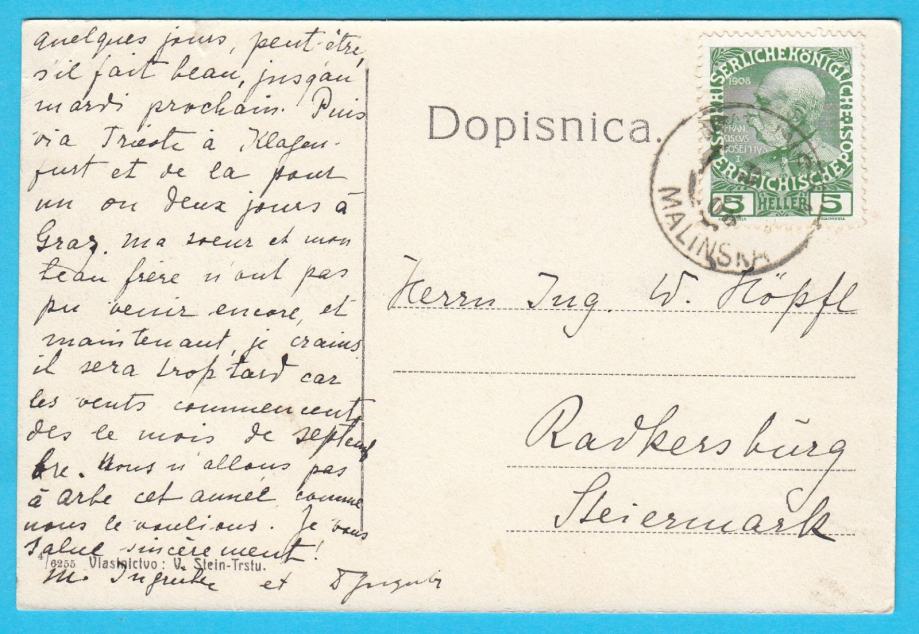 quelques jours, peut-être,
s'il fait beau, jusqu'au
mardi prochain. Puis
via Trieste à Klagen-
furt et de la pour
un ou deux jours à
Graz. Ma soeur et mon
beau frère n'ont pas
pu venir encore, et
maintenant, je crains
il sera trop tard car
les vents commencent
des le mois de septem
bre. Nous n'allons pas
à Arbe cet année comme
nous le voulions. Je vous
salue sincèrement!
M. et
4/6255 Vlasnictvo: V. Stein-Trstu.
Dopisnica.
KAISERLICHEKÖNIGLICHE ÖSTERREICHISCHE POST
1908
FRAN
CISCVS
IOSEPHVS
I
5 HELLER 5
08
MALINSKA
Herrn Ing. W. Höpfl
Radkersburg
Steiermark